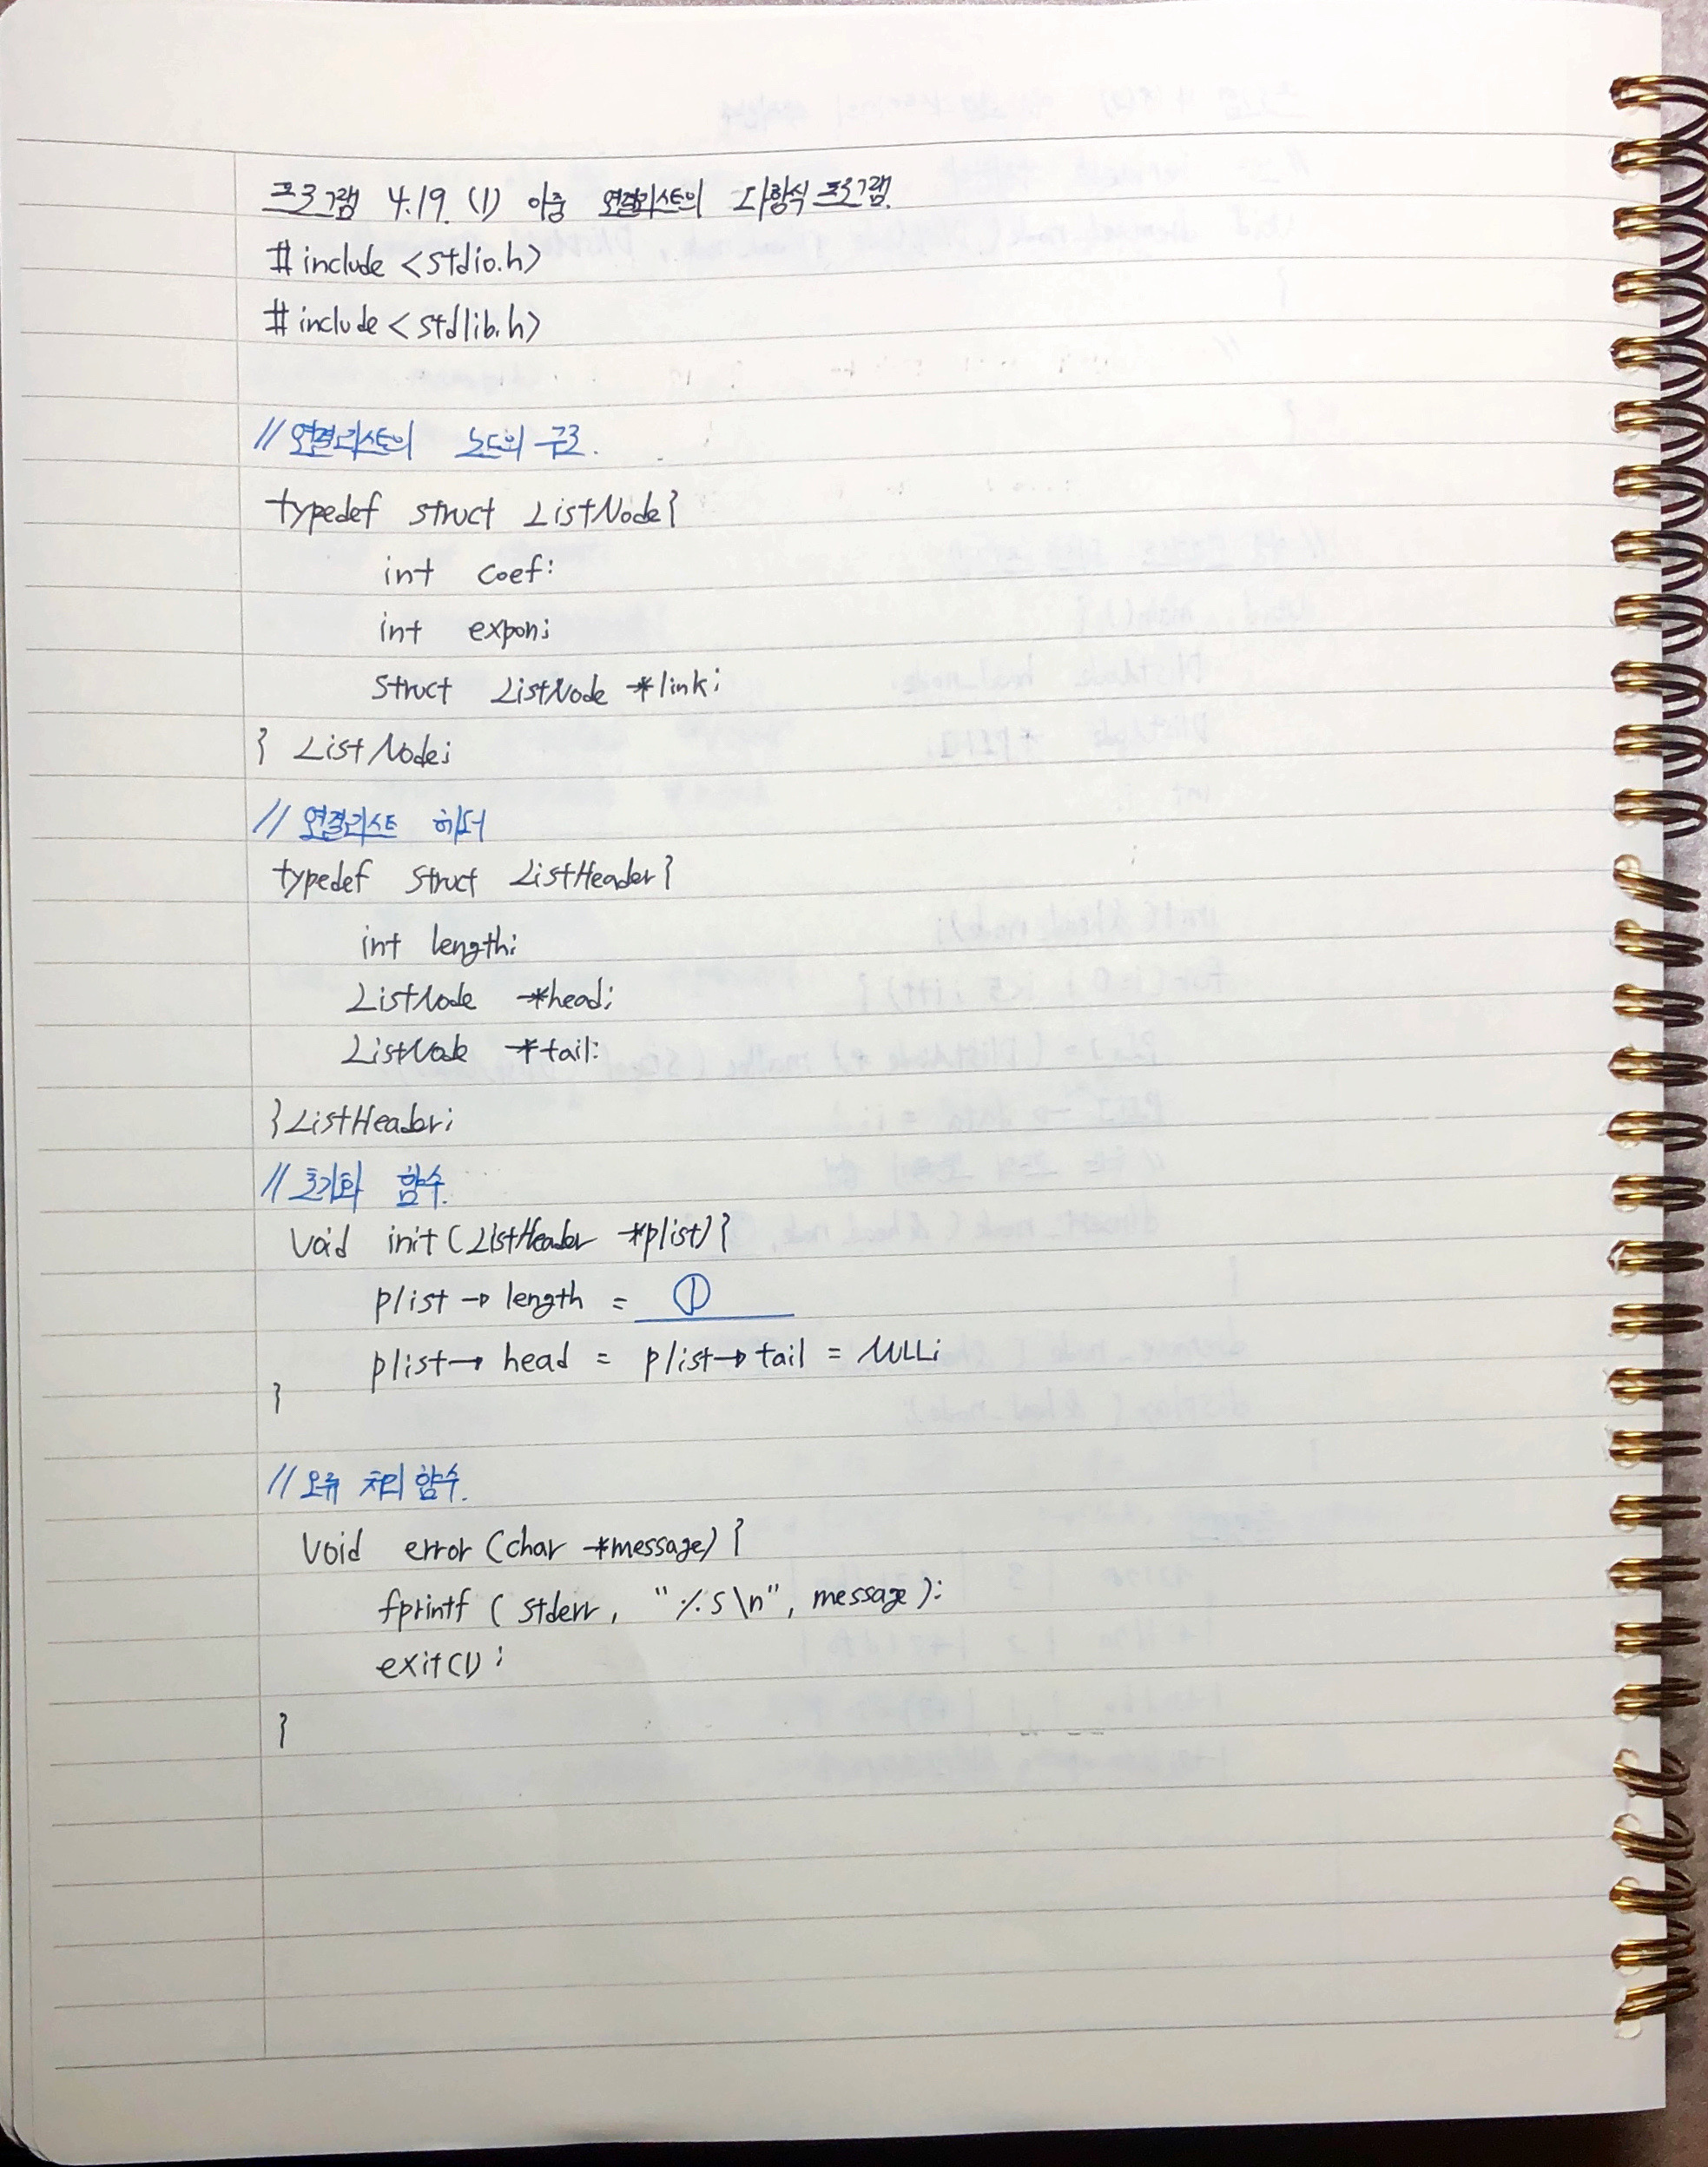 프로그램 4.19. (1) 이중 연결리스트의 다항식 프로그램.
#include <stdio.h>
#include <stdlib.h>
// 연결리스트의 노드의 구조.
typedef struct ListNode{
int coef;
int expon;
struct ListNode *link;
} ListNode;
// 연결리스트 헤더
typedef struct ListHeader{
int length;
ListNode *head;
ListNode *tail;
}ListHeader;
// 초기화 함수.
void init(ListHeader *plist){
plist → length = ①
plist → head = plist → tail = NULL;
}
// 오류 처리 함수.
void error (char *message) {
fprintf ( stderr, "%s\n", message);
exit(1);
}